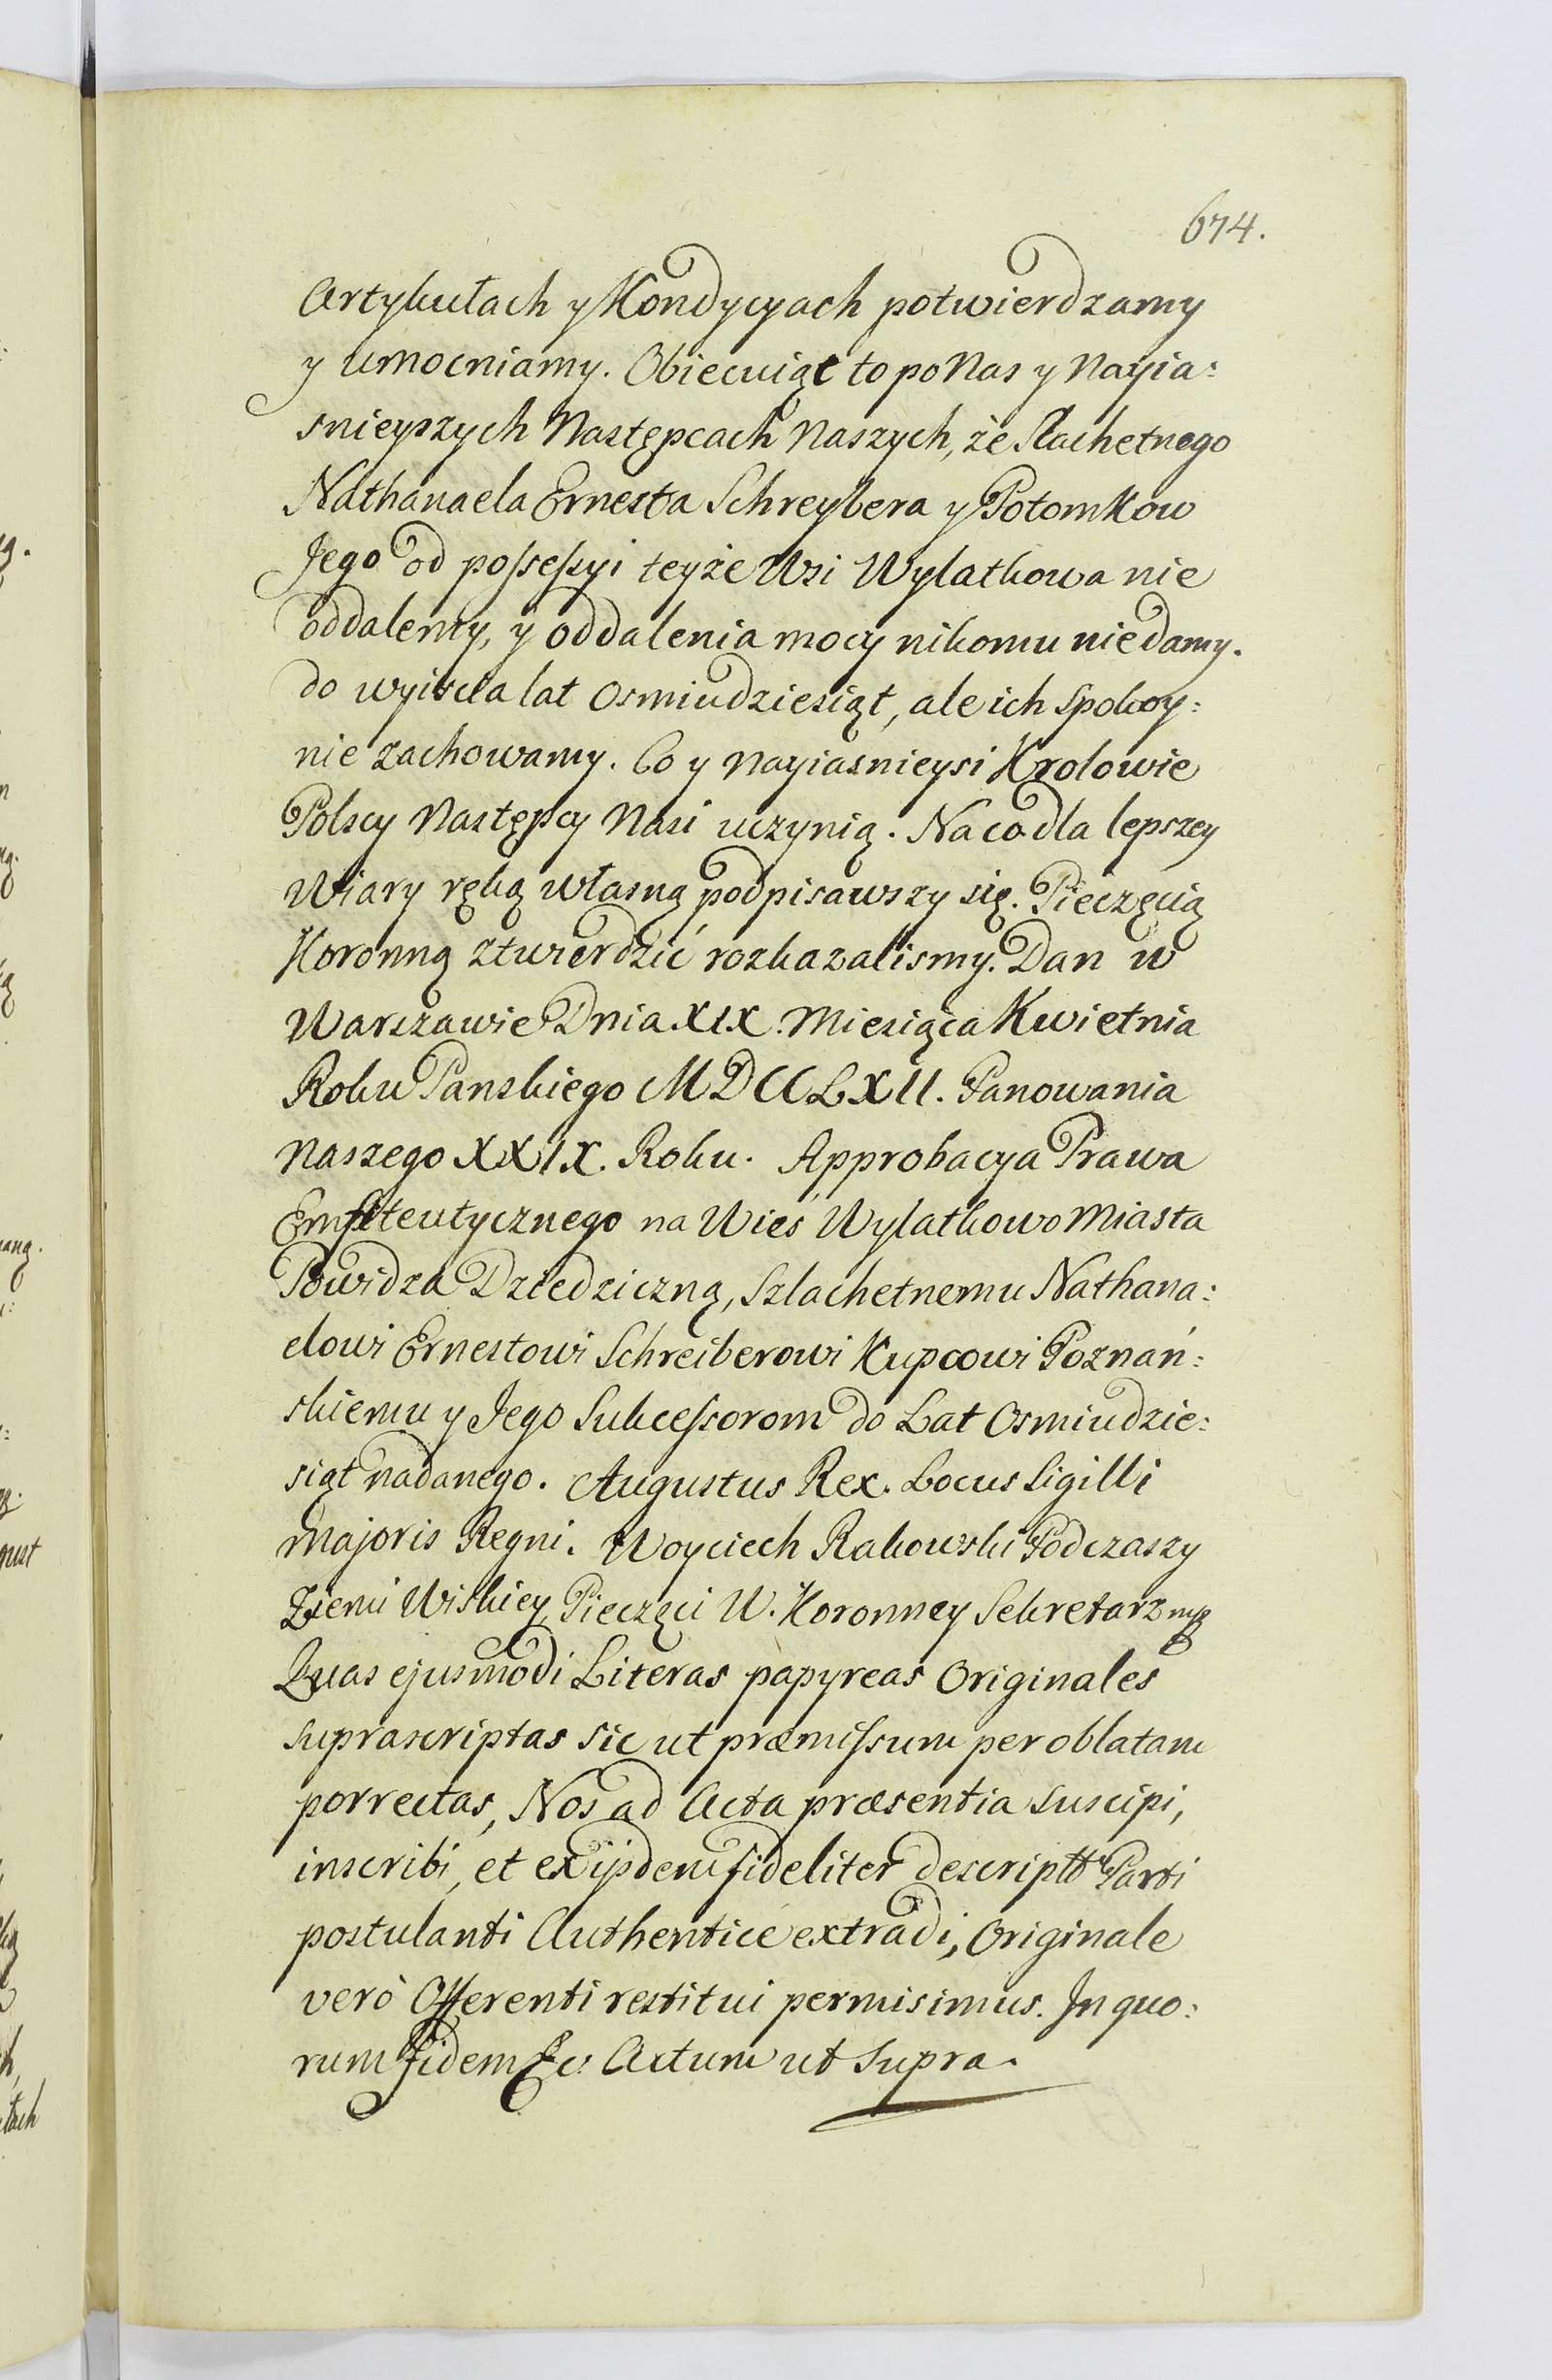 674.
Artykułach y Kondycyach potwierdzamy
y umocniamy. Obiecuiąc to po Nas y Nayia:
snieyszych Następcach Naszych, że Slachetnego
Nathanaela Ernesta Schreybera y Potomkow
Jego od possessyi teyże Wsi Wylatkowa nie
oddalemy, y oddalenia mocy nikomu nie damy.
do wyiscia lat osmiudziesiąt, ale ich spokoy:
nie zachowamy. Co y Nayiasnieysi Krolowie
Polscy Następcy Nasi uczynią. Na co dla lepszey
Wiary ręką własną podpisawszy się. Pieczęcią
Koronną ztwierdzić rozkazalismy. Dan w
Warszawie Dnia XIX. Miesiąca Kwietnia
Roku Panskiego MDCCLXII. Panowania
Naszego XXIX. Roku. Approbacya Prawa
Emfiteutycznego na Wieś Wylatkowo Miasta
Powidza Dziedziczną, Szlachetnemu Nathana:
elowi Ernestowi Schreiberowi Kupcowi Poznań:
skiemu y Jego Sukcessorom do Lat Osmiudzie:
siąt nadanego. Augustus Rex. Locus Sigilli
Majoris Regni. Woyciech Rakowski Podczaszy
Ziemi Wiskiey, Pieczęci W. Koronney Sekretarz mp
Quas ejusmodi Literas papyreas Originales
suprascriptas sic ut præmissum per oblatam
porrectas, Nos ad Acta præsentia suscipi,
inscribi, et ex ijsdem fideliter descriptt Parti
postulanti Authentice extradi, Originale
verò Offerenti restitui permisimus. In quo:
rum fidem &c. Actum ut supra.